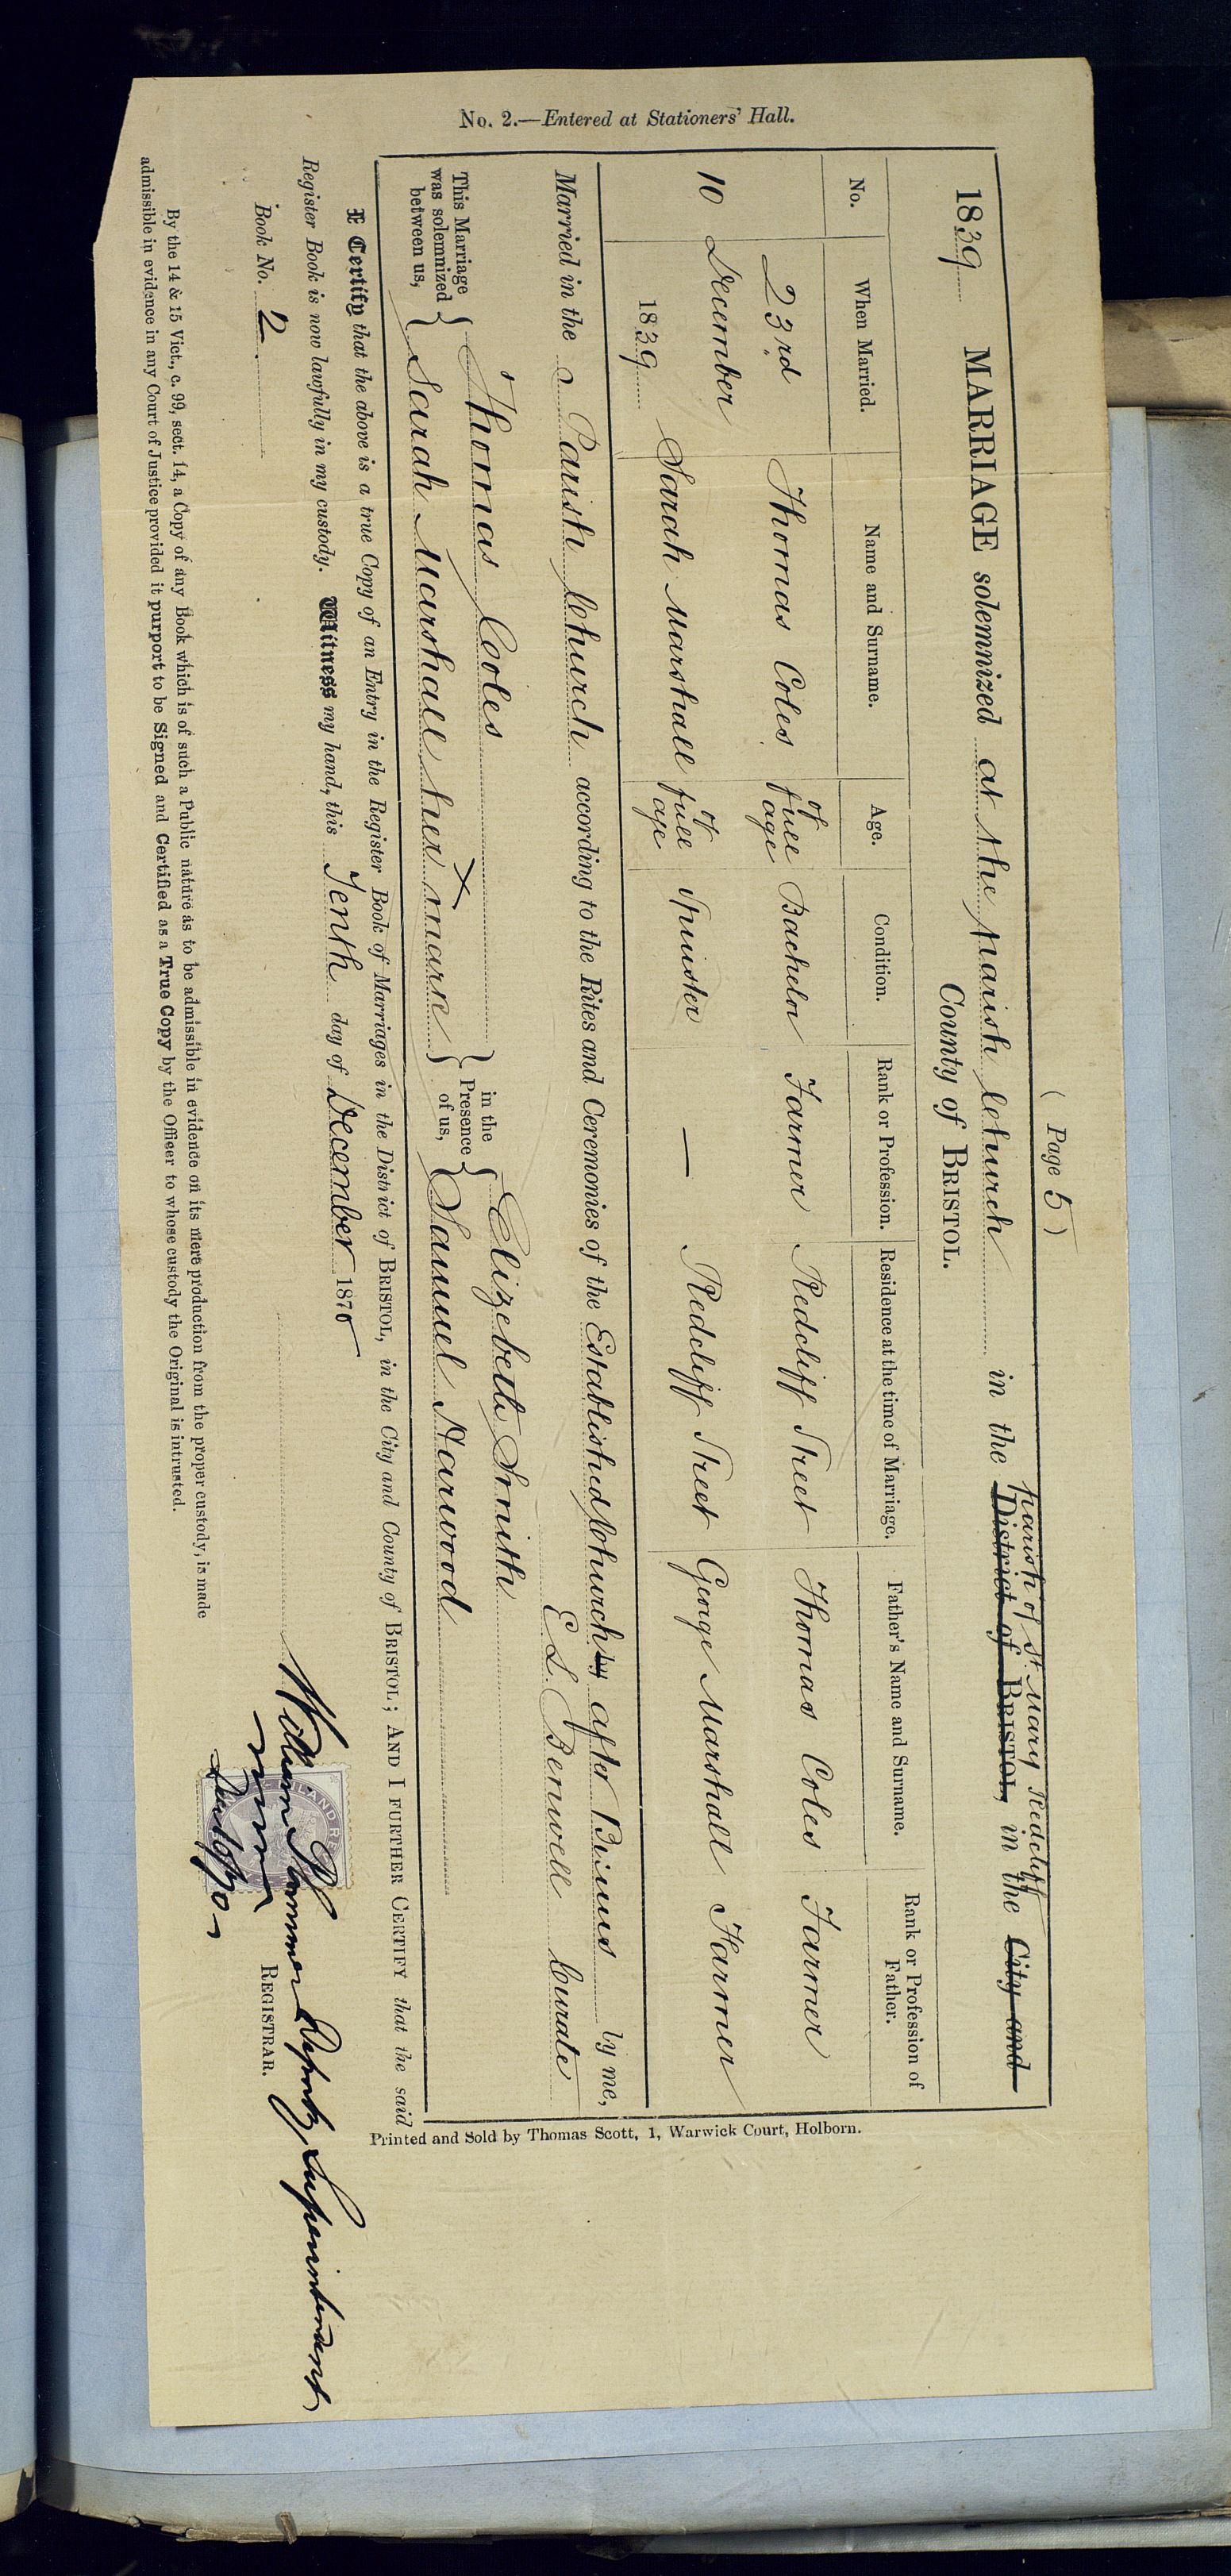 ( Page 5 )
1839 MARRIAGE solemnized at the parish Church in the District of BRISTOL, in the City and
parish of St. Mary Redcliff
County of BRISTOL.
No. When Married. Name and Surname. Age. Condition. Rank or Profession. Residence at the time of Marriage. Father's Name and Surname. Rank or Profession of Father.
23rd Thomas Coles of full age Bachelor Farmer Redcliff Street Thomas Coles Farmer
10 December
1839 Sarah Marshall of full age Spinster — Redcliff Street George Marshall Farmer
Married in the Parish Church according to the Rites and Ceremonies of the Established Church by after Banns by me,
E L Benwell Curate
This Marriage was solemnized between us, Thomas Coles in the Presence of us, Elizabeth Smith
Sarah Marshall her X mark Samuel Harwood
I Certify that the above is a true Copy of an Entry in the Register Book of Marriages in the District of BRISTOL, in the City and County of BRISTOL; AND I FURTHER CERTIFY that the said
Register Book is now lawfully in my custody. Witness my hand, this Tenth day of December 1870
William Deputy Superintendent
Book No. 2. REGISTRAR.
By the 14 & 15 Vict., c. 99, sect. 14, a Copy of any Book which is of such a Public nature as to be admissible in evidence on its mere production from the proper custody, is made
admissible in evidence in any Court of Justice provided it purport to be Signed and Certified as a True Copy by the Officer to whose custody the Original is intrusted.
No. 2.—Entered at Stationers' Hall.
Printed and Sold by Thomas Scott, 1, Warwick Court, Holborn.